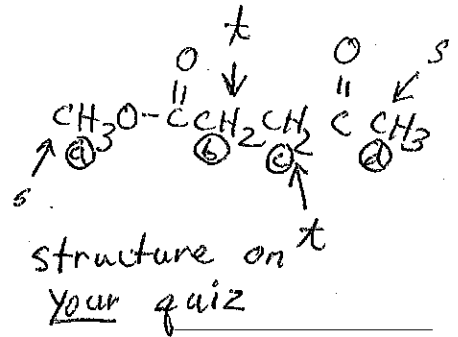 t
O O S
|| ||
CH3O-C CH2 CH2 C CH3
a b c d
s
t
structure on
your quiz